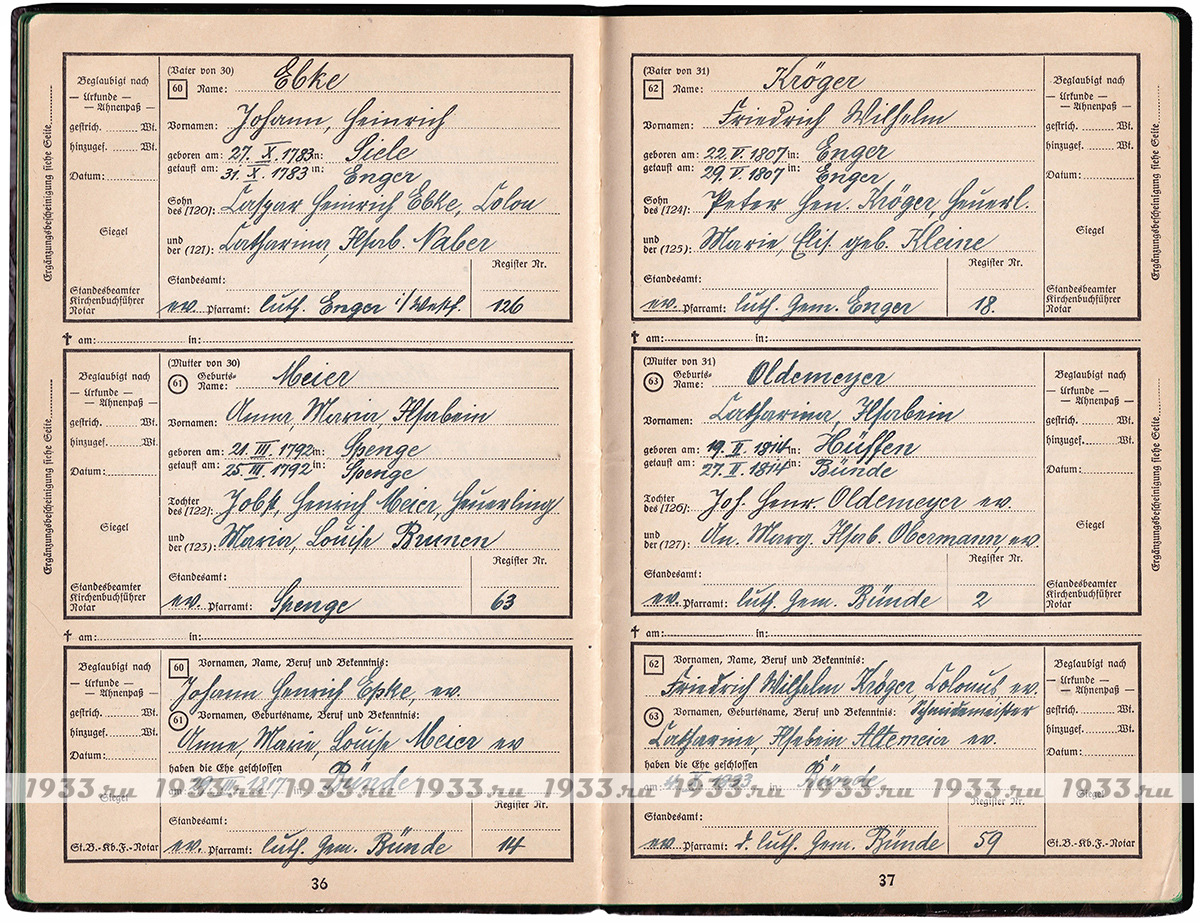 Ergänzungsbescheinigung siehe Seite
Beglaubigt nach
— Urkunde —
— Ahnenpaß —
gestrich. Wt.
hinzugef. Wt.
Datum:
Siegel
Standesbeamter
Kirchenbuchführer
Notar
(Vater von 30)
60 Name: Ebke
Vornamen: Johann, Heinrich
geboren am: 27. X. 1783 in: Siele
getauft am: 31. X. 1783 in: Enger
Sohn
des (120): Caspar Heinrich Ebke, Colon
und
der (121): Catharina, Ilsab. Naber
Register Nr.
Standesamt:
ev. Pfarramt: luth. Enger i/Westf. 126
† am: in:
Ergänzungsbescheinigung siehe Seite
Beglaubigt nach
— Urkunde —
— Ahnenpaß —
gestrich. Wt.
hinzugef. Wt.
Datum:
Siegel
Standesbeamter
Kirchenbuchführer
Notar
(Mutter von 30)
61 Geburts-
Name: Meier
Vornamen: Anna, Maria, Ilsabein
geboren am: 21. III. 1792 in: Spenge
getauft am: 25. III. 1792 in: Spenge
Tochter
des (122): Jobst, Henrich Meier, Heuerling
und
der (123): Maria, Louise Brunen
Register Nr.
Standesamt:
ev. Pfarramt: Spenge 63
† am: in:
Beglaubigt nach
— Urkunde —
— Ahnenpaß —
gestrich. Wt.
hinzugef. Wt.
Datum:
Siegel
St.B.-Kb.F.-Notar
60 Vornamen, Name, Beruf und Bekenntnis:
Johann Henrich Epke, ev.
61 Vornamen, Geburtsname, Beruf und Bekenntnis:
Anne, Marie, Louise Meier ev
haben die Ehe geschlossen
am III. 1817 in: Bünde
Register Nr.
Standesamt:
ev. Pfarramt: luth. Gem. Bünde 14
36
(Vater von 31)
62 Name: Kröger
Vornamen: Friedrich Wilhelm
geboren am: 22. V. 1807 in: Enger
getauft am: 29. V. 1807 in: Enger
Sohn
des (124): Peter Hen. Kröger, Heuerl.
und
der (125): Marie, Elis. geb. Kleine
Register Nr.
Standesamt:
ev. Pfarramt: luth. Gem. Enger 18.
Beglaubigt nach
— Urkunde —
— Ahnenpaß —
gestrich. Wt.
hinzugef. Wt.
Datum:
Siegel
Standesbeamter
Kirchenbuchführer
Notar
Ergänzungsbescheinigung siehe Seite
† am: in:
(Mutter von 31)
63 Geburts-
Name: Oldemeyer
Vornamen: Catharina, Ilsabein
geboren am: 19. II. 1814 in: Hüffen
getauft am: 27. II. 1814 in: Bünde
Tochter
des (126): Joh. Henr. Oldemeyer ev.
und
der (127): An. Marg. Ilsab. Obermann, ev.
Register Nr.
Standesamt:
ev. Pfarramt: luth. Gem. Bünde 2
Beglaubigt nach
— Urkunde —
— Ahnenpaß —
gestrich. Wt.
hinzugef. Wt.
Datum:
Siegel
Standesbeamter
Kirchenbuchführer
Notar
Ergänzungsbescheinigung siehe Seite
† am: in:
62 Vornamen, Name, Beruf und Bekenntnis:
Friedrich Wilhelm Kröger, Colonus ev.
63 Vornamen, Geburtsname, Beruf und Bekenntnis: Schneidemeister
Catharine, Ilsebein Altemeier ev.
haben die Ehe geschlossen
am X. 1833 in: Bünde
Register Nr.
Standesamt:
ev. Pfarramt: d. luth. Gem. Bünde 59
Beglaubigt nach
— Urkunde —
— Ahnenpaß —
gestrich. Wt.
hinzugef. Wt.
Datum:
Siegel
St.B.-Kb.F.-Notar
37
1933.ru 1933.ru 1933.ru 1933.ru 1933.ru 1933.ru 1933.ru 1933.ru 1933.ru